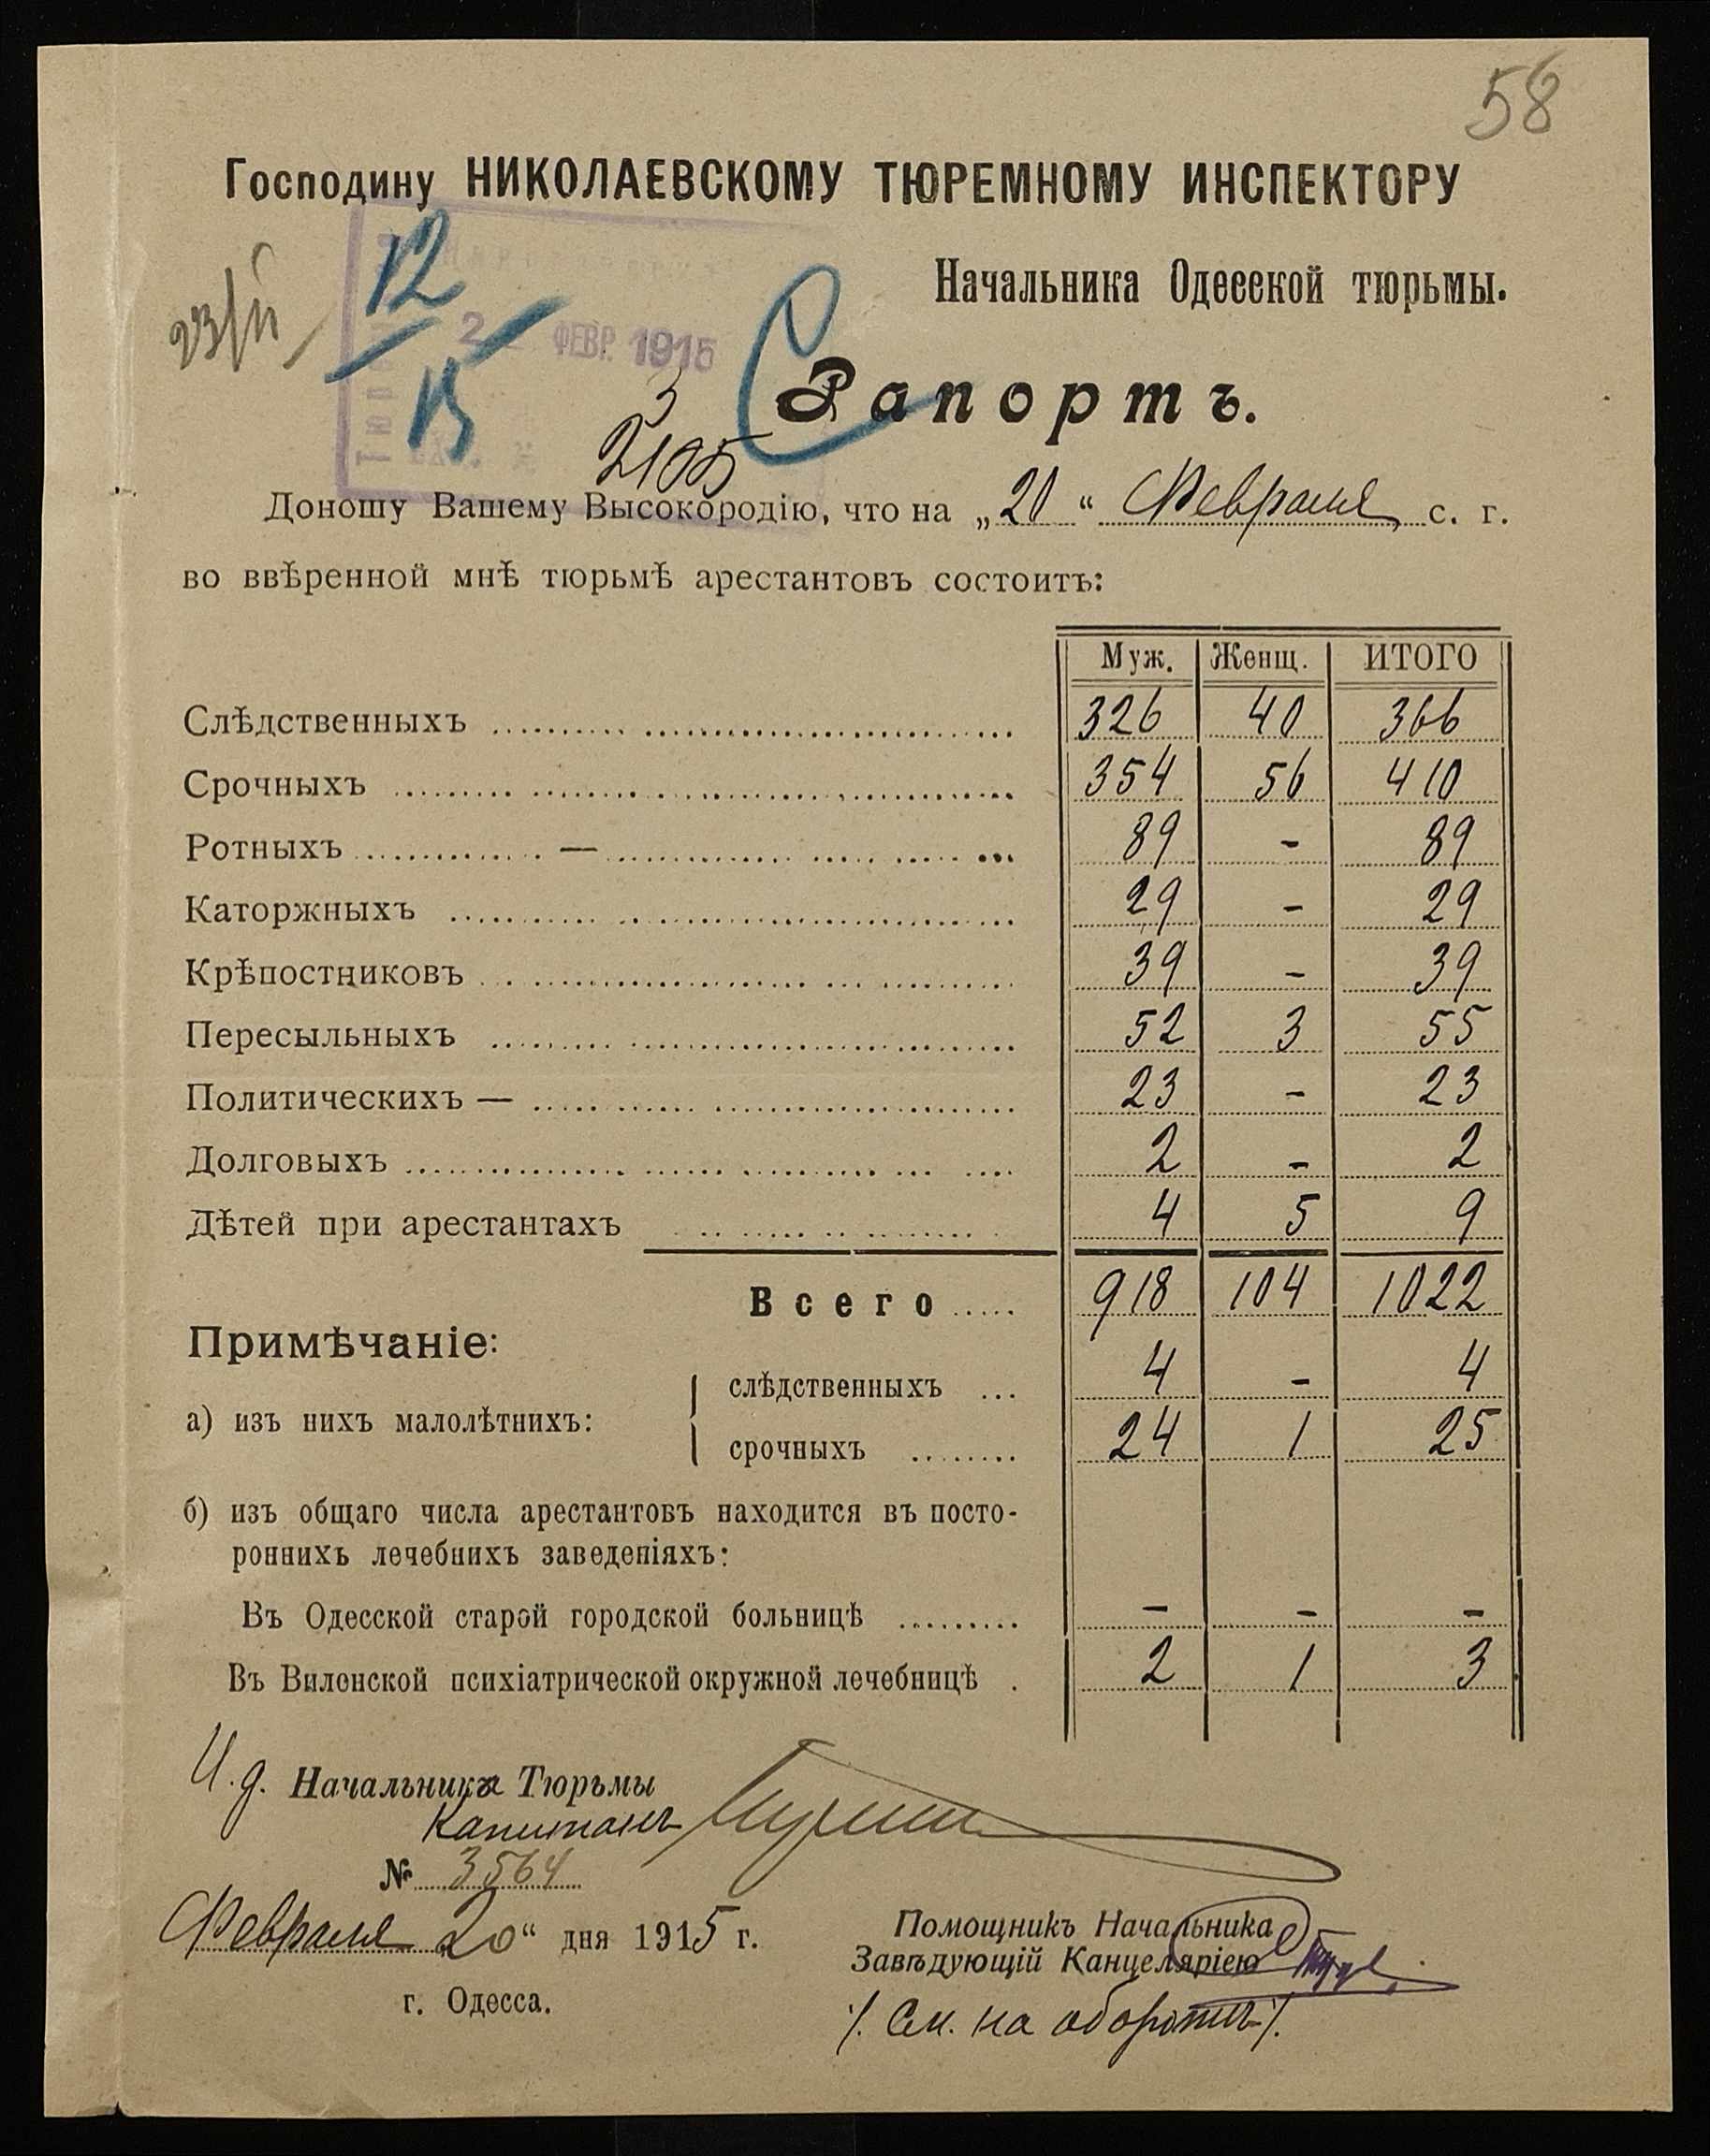 58
Господину НИКОЛАЕВСКОМУ ТЮРЕМНОМУ ИНСПЕКТОРУ
Начальника Одесской тюрьмы.
23/II
12
15
ФЕВР. 1915
3
2105
Рапортъ.
Доношу Вашему Высокородію, что на „20“ Февраля с. г.
во ввѣренной мнѣ тюрьмѣ арестантовъ состоитъ:
Муж. Женщ. ИТОГО
Слѣдственныхъ 326 40 366
Срочныхъ 354 56 410
Ротныхъ — 89 - 89
Каторжныхъ 29 - 29
Крѣпостниковъ 39 - 39
Пересыльныхъ 52 3 55
Политическихъ — 23 - 23
Долговыхъ 2 - 2
Дѣтей при арестантахъ 4 5 9
Всего 918 104 1022
Примѣчаніе:
а) изъ нихъ малолѣтнихъ:
слѣдственныхъ 4 - 4
срочныхъ 24 1 25
б) изъ общаго числа арестантовъ находится въ посто-
роннихъ лечебнихъ заведеніяхъ:
Въ Одесской старой городской больницѣ - - -
Въ Виленской психіатрической окружной лечебницѣ 2 1 3
И.д. Начальника Тюрьмы
Капитанъ
№ 3564
Февраля 20“ дня 1915 г.
г. Одесса.
Помощникъ Начальника
Завѣдующій Канцеляріею
/. См. на оборотѣ ./.